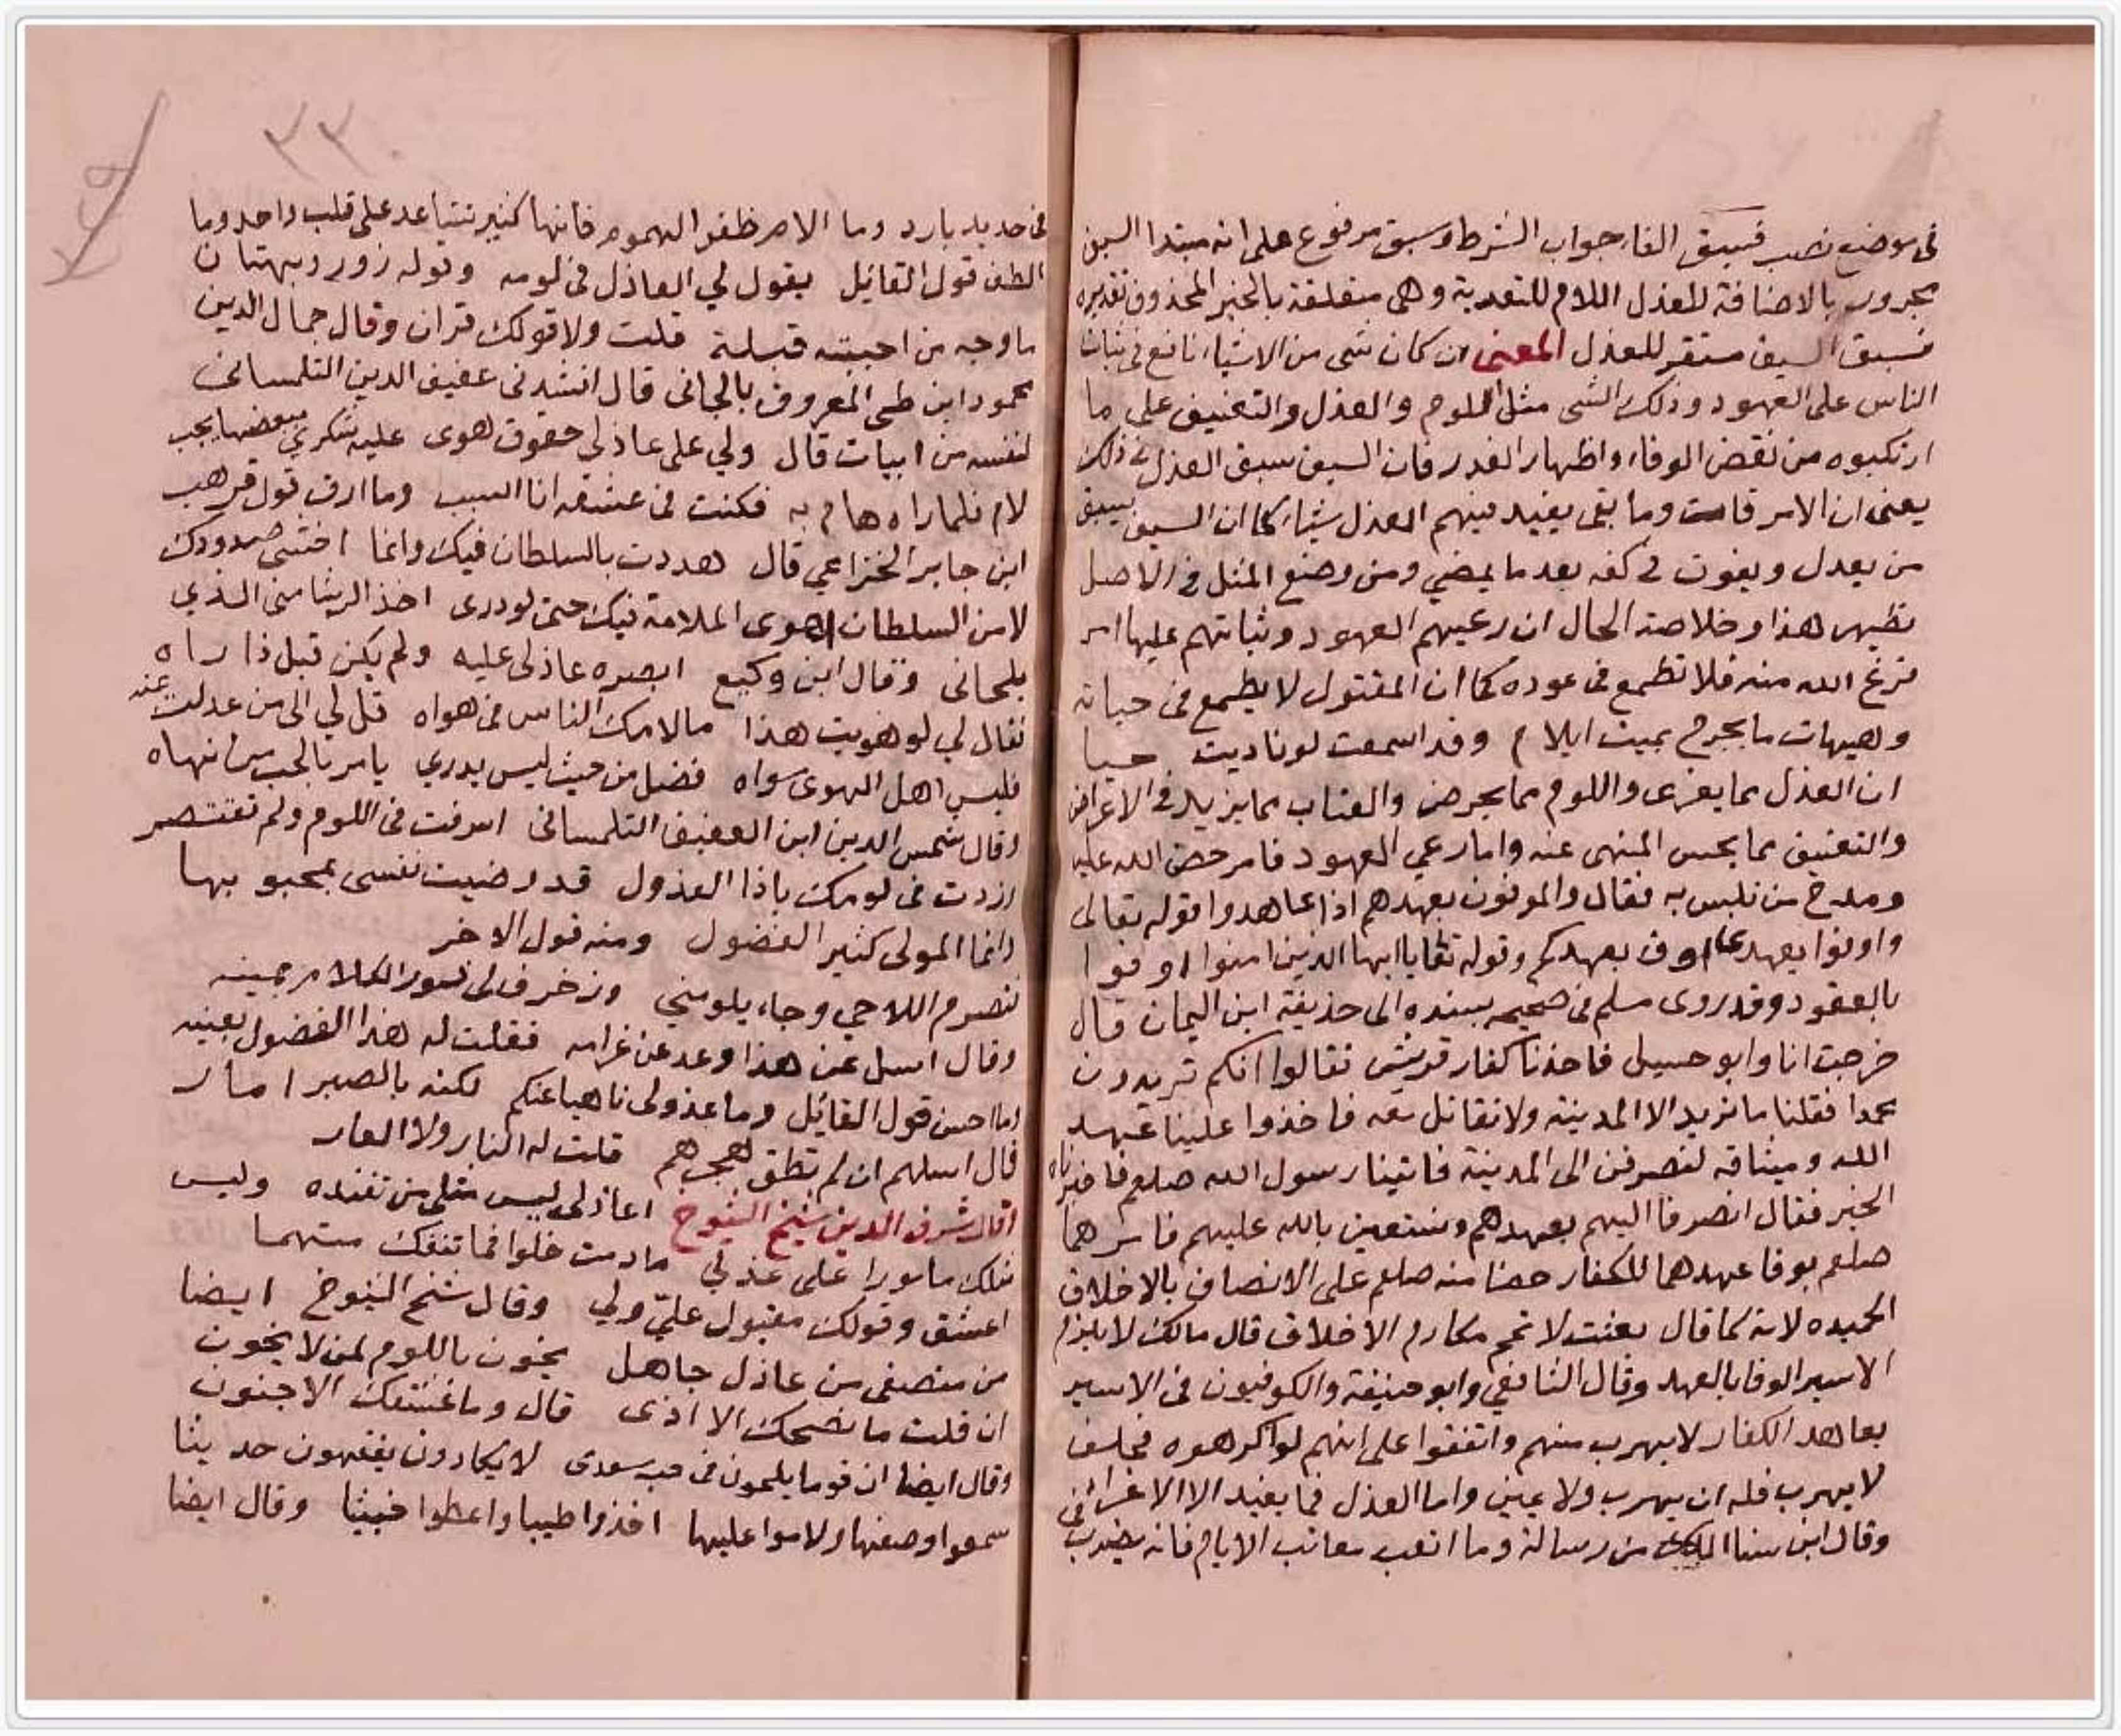 في موضع نصب فسبق الفا جواب الشرط وسبق مرفوع على انه مبتدا السيف
مجرور بالاضافة للعذل اللام للتعدية وهي متعلقة بالخبر المحذوف تقديره
فسبق السيف مستقر للعذل المعنى ان كان شي من الاشياء نافع في ثبات
الناس على العهود وذلك الشي مثل اللوم والعذل والتعنيف على ما
ارتكبوه من نقض الوفاء واظهار الغدر فان السيف سبق العذل في ذلك
يعنى ان الامر فات وما بقى يفيد فيهم العذل شياء كما ان السيف يسبق
من يعذل ويفوت في كفه بعد ما يمضي ومن وضع المثل في الاصل
تظهر هذا وخلاصة الحال ان رعيهم العهود وثباتهم عليها امر
فرغ الله منه فلا تطمع في عوده كما ان المقتول لا يطمع في حياته
وهيهات ما بجرح بميت ايلام وقد اسمعت لو ناديت حيا
ان العذل مما يغرى واللوم مما يحرض والعتاب مما يزيد في الاعراض
والتعنيف مما يحسن المنهى عنه واما رعي العهود فامر حض الله عليه
ومدح من تلبس به فقال والموفون بعهدهم اذا عاهدوا قوله تعالى
واوفوا بعهدى اوف بعهدكم وقوله تعا يا ايها الذين امنوا اوفوا
بالعقود وقد روى مسلم في صحيحه بسنده الى حذيفة ابن اليمان قال
خرجت انا وابو حسيل فاخذنا كفار قريش فقالوا انكم تريدون
محمدا فقلنا ما نريد الا المدينة ولا نقاتل معه فاخذوا علينا عهد
الله وميثاقه لنصرفن الى المدينة فاتينا رسول الله صلعم فاخبرناه
الخبر فقال انصرفا اليهم بعهدهم ونستعين بالله عليهم فامرهما
صلعم بوفا عهدهما للكفار حضا منه صلعم على الاتصاف بالاخلاق
الحميده لانه كما قال بعثت لاتمم مكارم الاخلاق قال مالك لا يلزم
الاسير الوفا بالعهد وقال الشافعي وابو حنيفة والكوفيون في الاسير
يعاهد الكفار لا يهرب منهم واتفقوا على انهم لو اكرهوه فحلف
لا يهرب فله ان يهرب ولا يمين واما العذل فما يفيد الا الاغراء
وقال ابن سنا الملك من رسالة وما اتعب معاتب الايام فانه يضرب في
في حديد بارد وما الامر ظفر الهموم فانها كثير تتباعد على قلب واحد وما
الطف قول القائل يقول لي العاذل في لومه وقوله زور وبهتان
ما وجه من احببته قبلة قلت ولا قولك قران وقال جمال الدين
محمود ابن طي المعروف بالجاني قال انشدني عفيف الدين التلمساني
لنفسه من ابيات قال ولي على عاذلي حقوق هوى عليه شكري ببعضها يجب
لام فلما راه هام به فكنت في عشقه انا السبب وما ارق قول مرهب
ابن جابر الخزاعي قال هددت بالسلطان فيك وانما اخشى صدودك
لا من السلطان اهوى الملامة فيك حتى لو درى اخذ الرشا منى الذي
يلحاني وقال ابن وكيع ابصره عاذلي عليه ولم يكن قبل ذا راه
فقال لي لو هويت هذا ما لامك الناس في هواه قل لي الى من عدلت عنه
فليس اهل الهوى سواه فضل من حيث ليس يدري يامر بالحب من نهاه
وقال شمس الدين ابن العفيف التلمساني اسرفت في اللوم ولم تقتصر
وزدت في لومك ياذا العذول قد رضيت نفسى بمحبوبها
وانما المولى كثير الفضول ومنه قول الاخر
تصرم اللاحي وجاء يلومني وزخرف لى زور الكلام بمينه
وقال اسل عن هذا وعد عن غرامه فقلت له هذا الفضول بعينه
وما احسن قول القائل وما عذولي ناهيا عنكم لكنه بالصبر امار
قال اسلهم ان لم تطق هجرهم قلت له النار ولا العار
وقال شرف الدين شيخ الشيوخ اعاذلى ليس مثلى من تفنده وليس
مثلك مامورا على عذلي ما دمت خلوا فما تنفك متهما
اعشق وقولك مقبول عليّ ولي وقال شيخ الشيوخ ايضا
من منصفى من عاذل جاهل يخون باللوم لمن لا يخون
ان قلت ما نصحك الا اذى قال وما عشقك الا جنون
وقال ايضا ان قوما يلحون في حب سعدى لا يكادون يفقهون حديثا
سمعوا وصفها ولاموا عليها اخذوا طيبا واعطوا خبيثا وقال ايضا